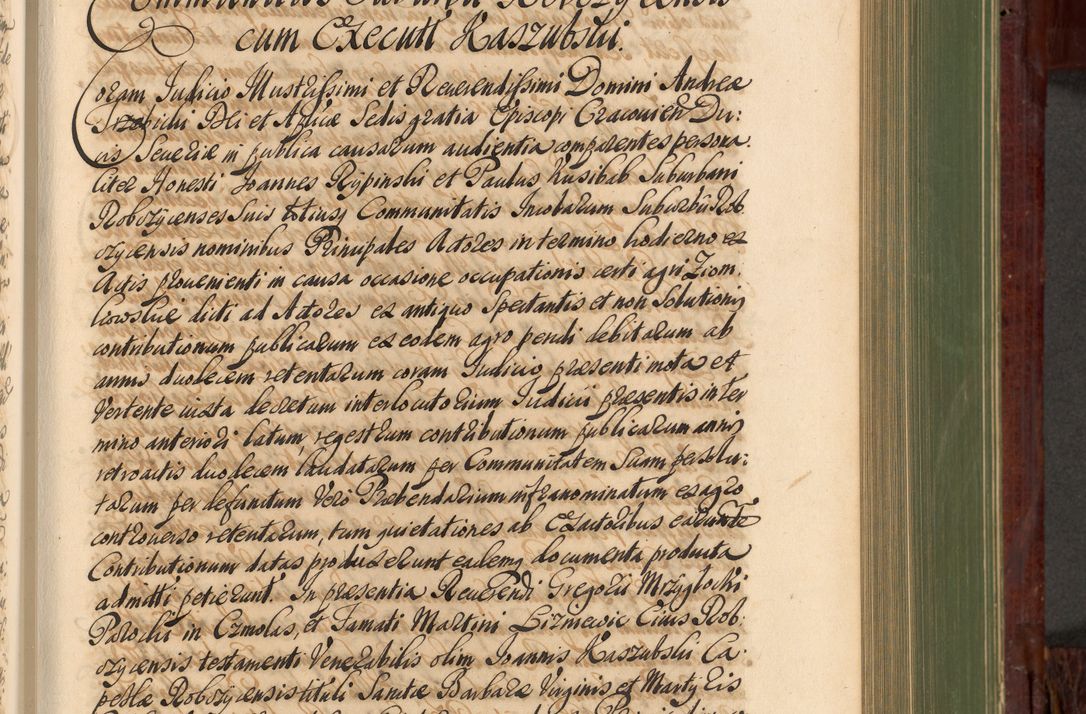 cum Executi Kaszubskii.
Coram Judicio Illustrissimi et Reverendissimi Domini Andreæ
Trzebicki Dei et Aplicæ Sedis gratia Episcopi Cracovien Du:
cis Severiæ in publica causarum audientia comparentes persona
liter Honesti Joannes Rypinskii et Paulus Kusibab Suburbani
Robozycenses Suis totiusq Communitatis Incolarum Suburbii Rob
ozycensis nominibus Principales Actores in termino hodierno ex
Actis provenienti in causa occasione occupationis certi agri Ziom:
kowskie dicti ad Actores ex antiquo Spectantis et non Solutionis
contributionum publicarum ex eodem agro pendi debitarum ab
annis duodecem retentarum coram Judicio præsenti mota et
Vertente iuxta decretum interlocutorium Judicii præsentis in ter
mino anteriori latum, regestrum contributionum publicarum annis
retroactis duodecem laudatarum per Communitatem Suam persolu:
tarum per defunctum Vero Præbendarium infranominatum ex agro
controverso retentarum, tum quietationes ab Exactoribus earunde
Contributionum datas produxerunt eademq documenta producta
admitti petierunt. In præsentia Reverendi Gregorii Mrzygłocki
Parochi in Czmolas, et Famati Martini Lizniewic Civis Rob
ozycensis testamenti Venerabilis olim Joannis Kaszubskii Ca:
pellæ Robozycensis tituli Sanctæ Barbaræ Virginis et Martyris